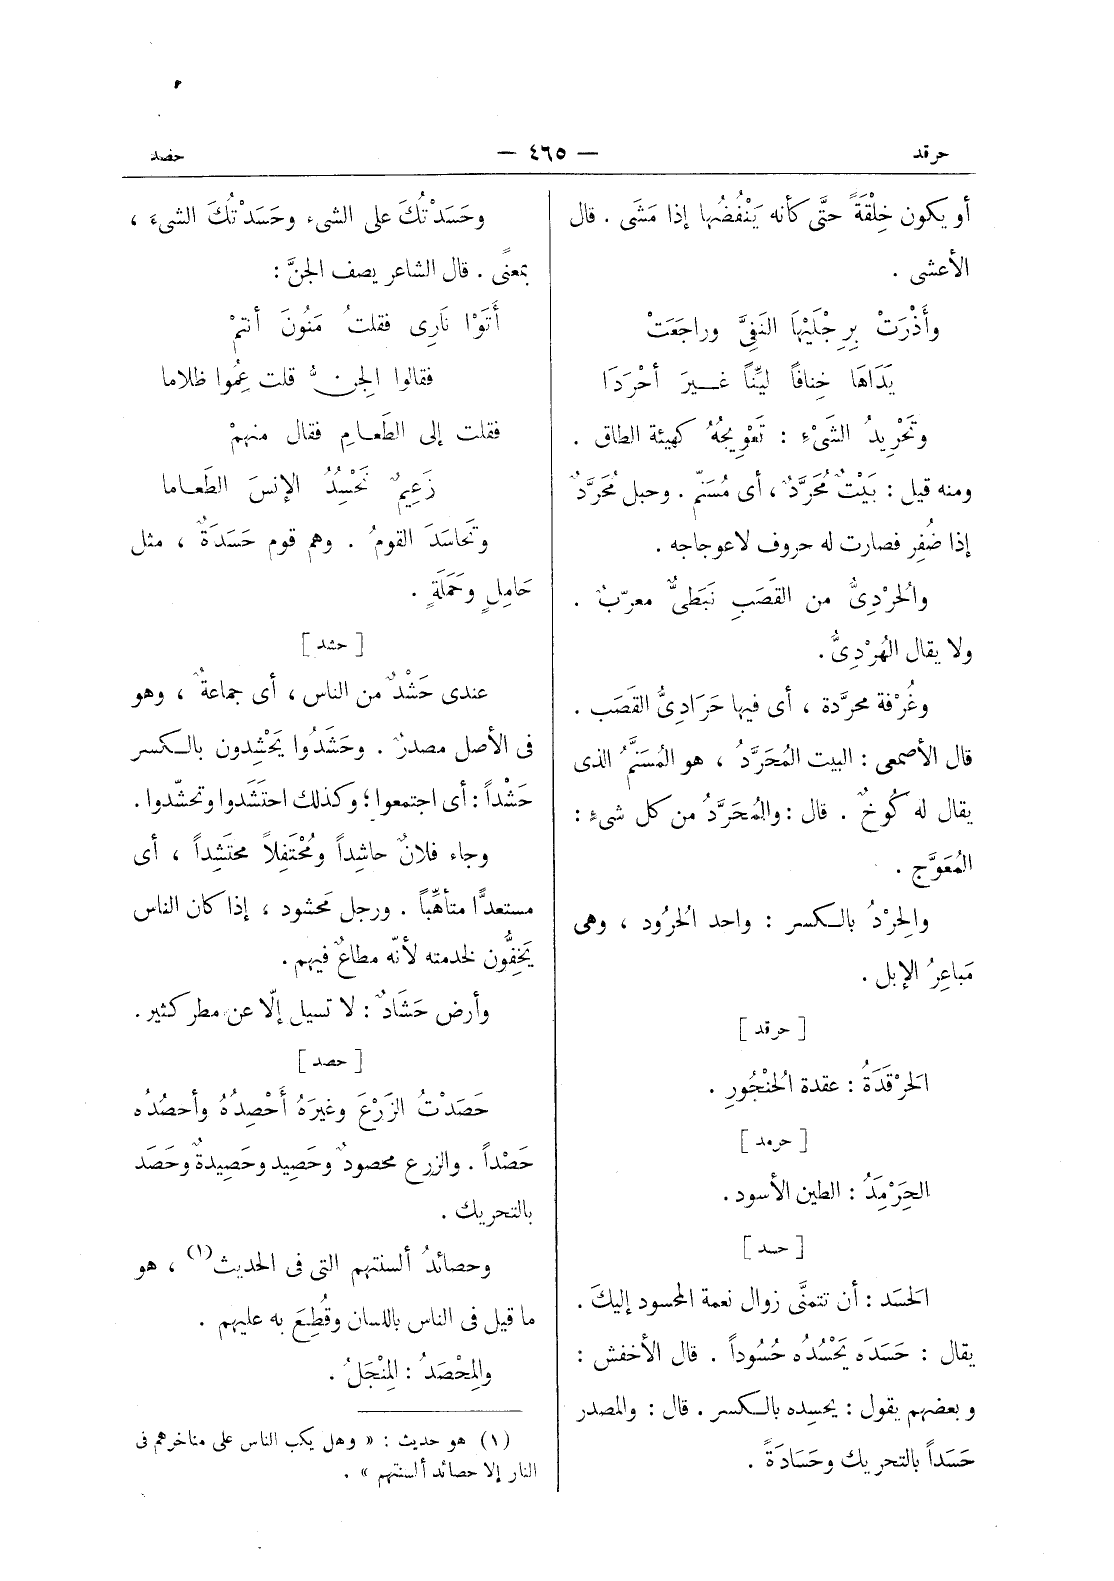 حرقد
— ٤٦٥ —
حصد
أو يكون خِلْقَةً حتَّى كأنه يَنْفُضُها إذا مَشَى . قال
الأعشى .
وأَذْرَتْ بِرِجْلَيْها النَفِىَّ وراجَعَتْ
يَدَاهَا خِنافاً لَيِّناً غــير أَحْرَدَا
وتَحْرِيدُ الشَىْءِ : تَعْوِيجُهُ كهيئة الطاق .
ومنه قيل : بَيْتٌ مُحَرَّدٌ ، أى مُسَنَّم . وحبل مُحَرَّدٌ
إذا ضُفِر فصارت له حروف لاعوجاجه .
والحُرْدِىُّ من القَصَبِ نَبَطىٌّ معرّبٌ .
ولا يقال الهُرْدِىُّ .
وغُرْفة محرَّدة ، أى فيها حَرَادِىُّ القَصَب .
قال الأصمعى : البيت المُحَرَّدُ ، هو المُسَنَّمُ الذى
يقال له كُوخٌ . قال : والمُحَرَّدُ من كل شىءٍ :
المُعَوَّج .
والحِرْدُ بالـكسر : واحد الحُرُود ، وهى
مَباعِرُ الإبل .
[ حرقد ]
الحَرْقَدَةُ : عقدة الحُنْجُورِ .
[ حرمد ]
الحَِرْمِدُ : الطين الأسود .
[ حسد ]
الحَسَد : أن تتمنَّى زوال نعمة المحسود إليكَ .
يقال : حَسَدَه يَحْسُدُه حُسُوداً . قال الأخفش :
وبعضهم يقول : يحسِده بالـكسر . قال : والمصدر
حَسَداً بالتحريك وحَسَادَةً .
وحَسَدْتُكَ على الشىء وحَسَدْتُكَ الشىءَ ،
بمعنًى . قال الشاعر يصف الجنَّ :
أَتَوْا نَارِى فقلتُ مَنُونَ أنتمْ
فقالوا الجِنُّ قلت عِمُوا ظلاما
فقلت إلى الطَعـامِ فقال منهمْ
زَعِيمٌ نَحْسُدُ الإنسَ الطَعاما
وتَحاسَدَ القومُ . وهم قوم حَسَدَةٌ ، مثل
حَامِلٍ وحَمَلَةٍ .
[ حشد ]
عندى حَشْدٌ من الناس ، أى جماعةٌ ، وهو
فى الأصل مصدرٌ . وحَشَدُوا يَحْشِدون بالـكسر
حَشْداً : أى اجتمعوا ؛ وكذلك احتَشَدوا وتحشّدوا .
وجاء فلانٌ حاشِداً ومُحْتَفِلاً محتَشِداً ، أى
مستعدًّا متأهِّباً . ورجل مَحشود ، إذا كان الناس
يَخِفُّون لخدمته لأنّه مطاعٌ فيهم .
وأرض حَشَادٌ : لا تسيل إلّا عن مطر كثير .
[ حصد ]
حَصَدْتُ الزَرْعَ وغيرَهُ أَحْصِدُهُ وأحصُدُه
حَصْداً . والزرع محصودٌ وحَصِيد وحَصِيدةٌ وحَصَد
بالتحريك .
وحصائدُ ألسنتهم التى فى الحديث(١) ، هو
ما قيل فى الناس باللسان وقُطِعَ به عليهم .
والمِحْصَدُ : المِنْجَلُ .
(١) هو حديث : « وهل يكب الناس على مناخرهم فى
النار إلا حصائد ألسنتهم » .